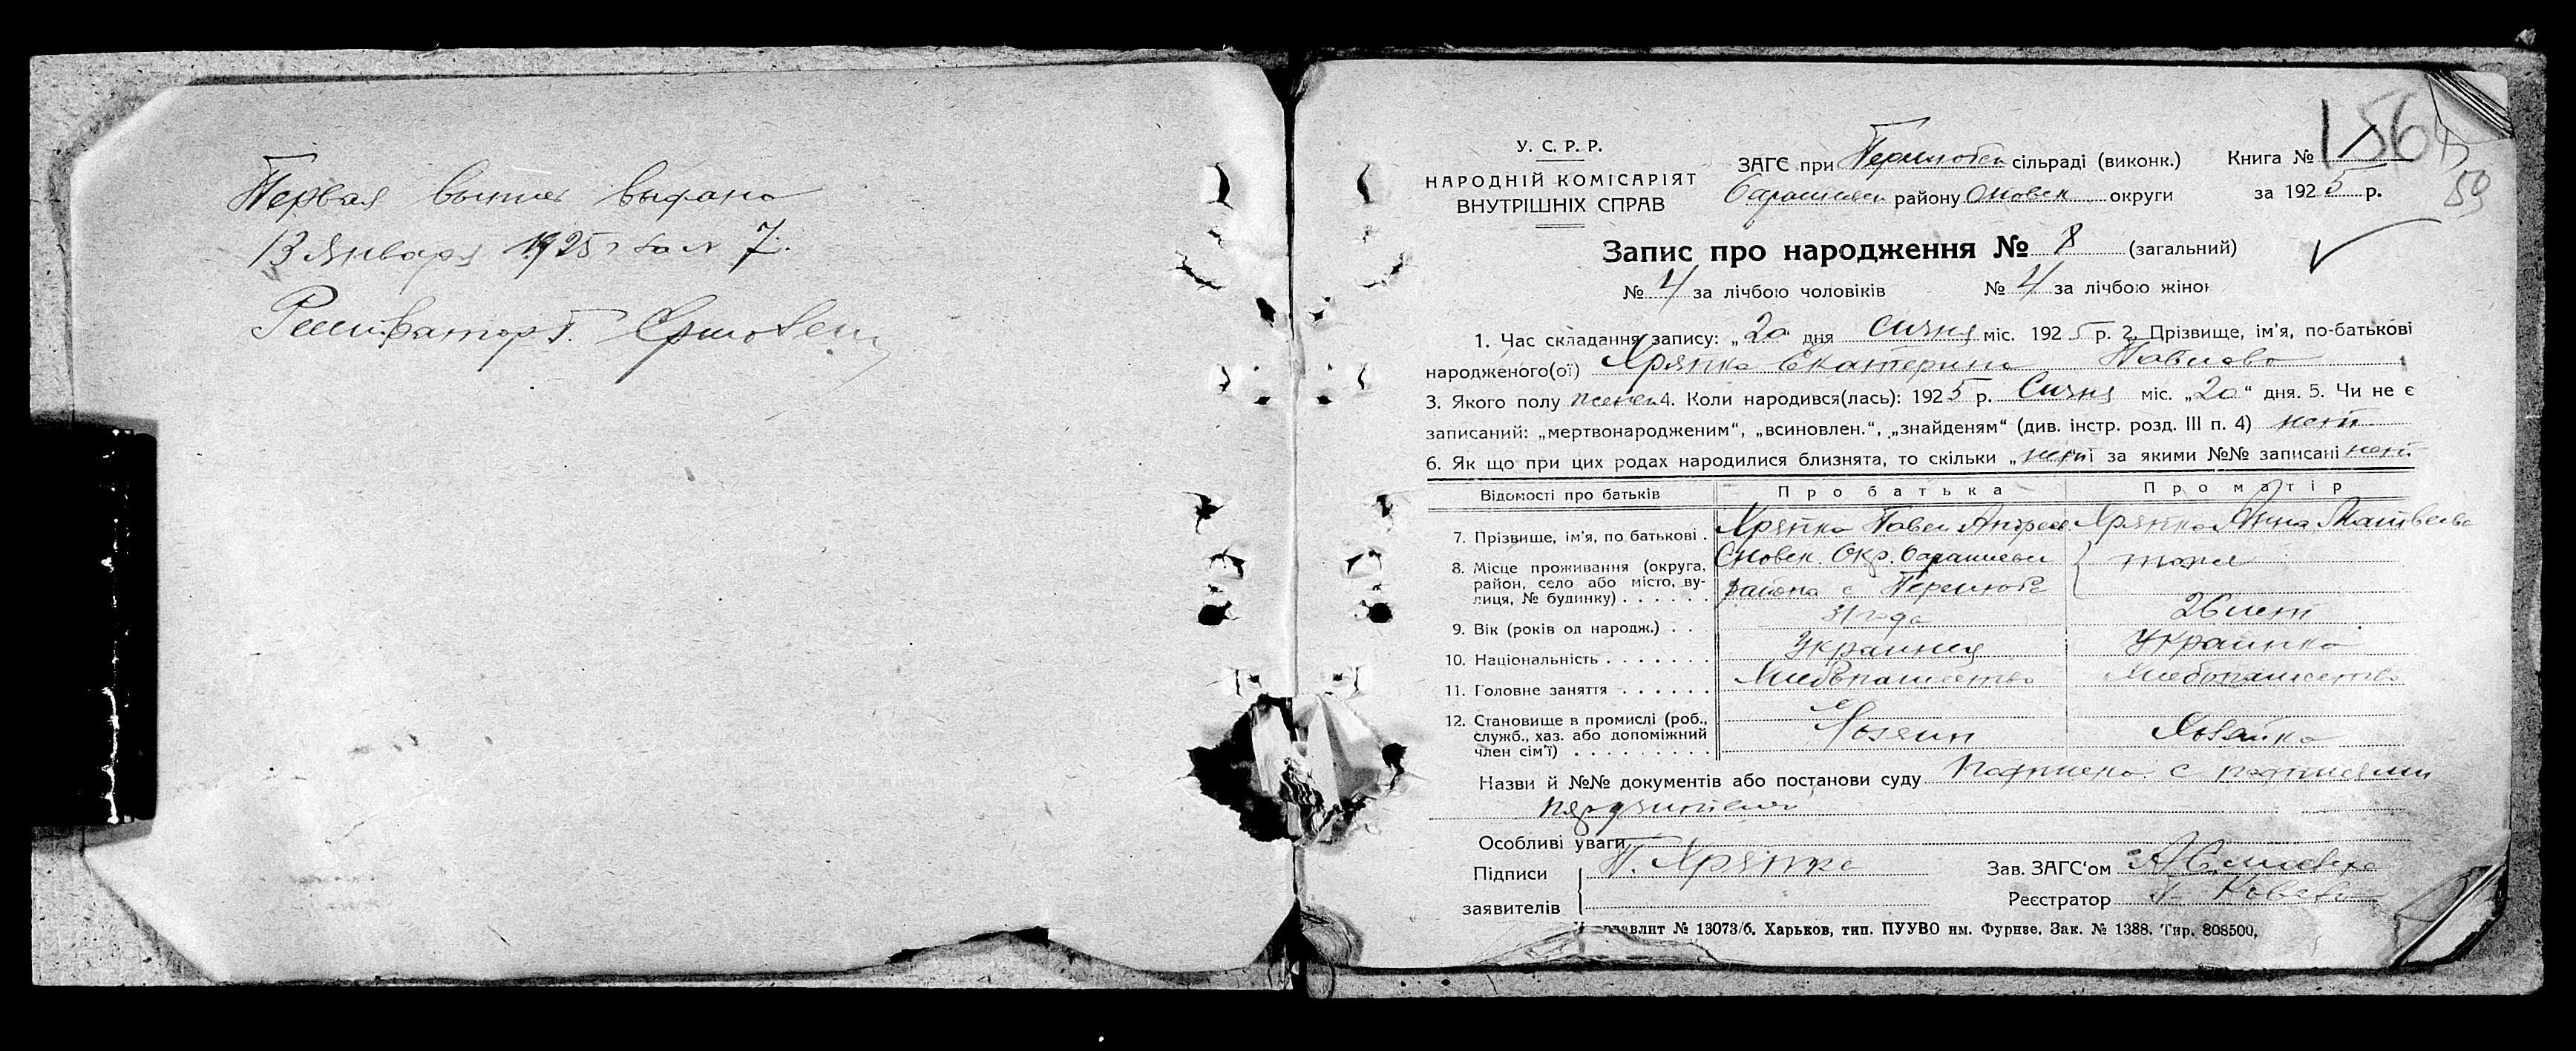 Первая выпись выдана
13 января 1925 г за № 7.
У. С. Р. Р.
НАРОДНІЙ КОМІСАРІЯТ
ВНУТРІШНІХ СПРАВ
ЗАГС при Перелюбск сільраді (виконк.)
району Сновск округи
Книга № 1
за 1925 р.
156
59
Запис про народження № 8 (загальний)
№ 4 за лічбою чоловіків № 4 за лічбою жінок
1. Час складання запису: „20 дня Сичня міс. 1925 р. 2. Прізвище, ім'я, по-батькові
народженого(ої) Хряпко Екатерина Павлова
3. Якого полу женск 4. Коли народився(лась): 1925 р. Сичня міс. „20“ дня. 5. Чи не є
записаний: „мертвонародженим“, „всиновлен.“, „знайденям“ (див. інстр. розд. III п. 4) нет
6. Як що при цих родах народилися близнята, то скільки „нет і за якими №№ записані нет
Відомості про батьків Про батька Про матір
7. Прізвище, ім'я, по батькові . Хряпко Павел Андреев Хряпко Анна Матвеева
8. Місце проживання (округа, район, село або місто, вулиця, № будинку) . . . . . .
Сновск. Окр.
района с Перелюб
тоже
9. Вік (років од народж.) . . 31 года 26 лет
10. Національність . . . . . . . Украинец Украинка
11. Головне заняття . . . . . . Хлебопашество Хлебопашество
12. Становище в промислі (роб., служб., хаз. або допоміжний член сім'ї) . . . . . . . . .
Хозяин Хозяйка
Назви й №№ документів або постанови суду
Особливі уваги
Підписи П. Хряпко
заявителів
Зав. ЗАГС'ом
Реєстратор
№ 13073/б. Харьков, тип. ПУУВО им. Фрунзе. Зак. № 1388. Тир. 808500,